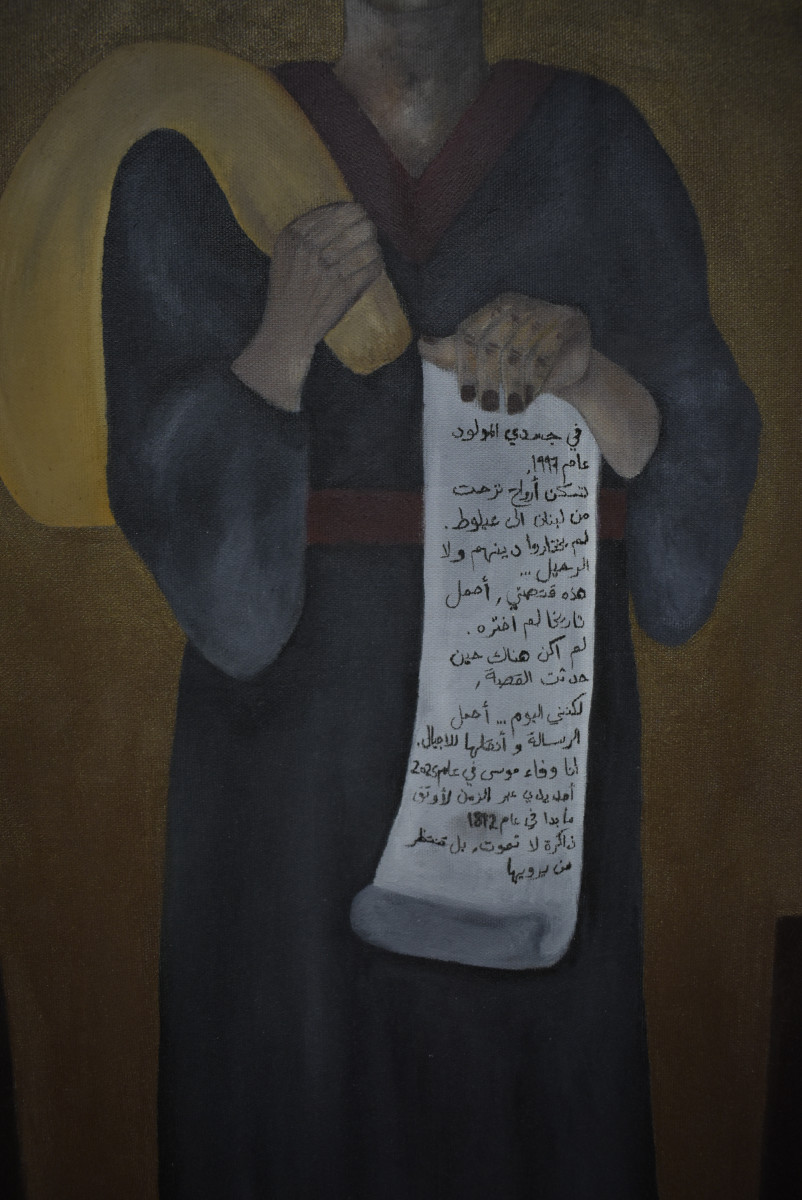 في جسدي المولود
عام ١٩٩٧,
تسكن أرواح نزحت
من لبنان الى عيلوط.
لم يختاروا دينهم ولا
الرحيل...
هذه قصتي, أحمل
تاريخا لم أختره.
لم اكن هناك حين
حدثت القصة,
لكنني اليوم... أحمل
الرسالة و أنقلها للاجيال.
انا وفاء موسى في عام 2025
أمد يدي عبر الزمن لأوثق
ما بدا في عام 1812
ذاكرة لا تموت, بل تنتظر
من يرويها